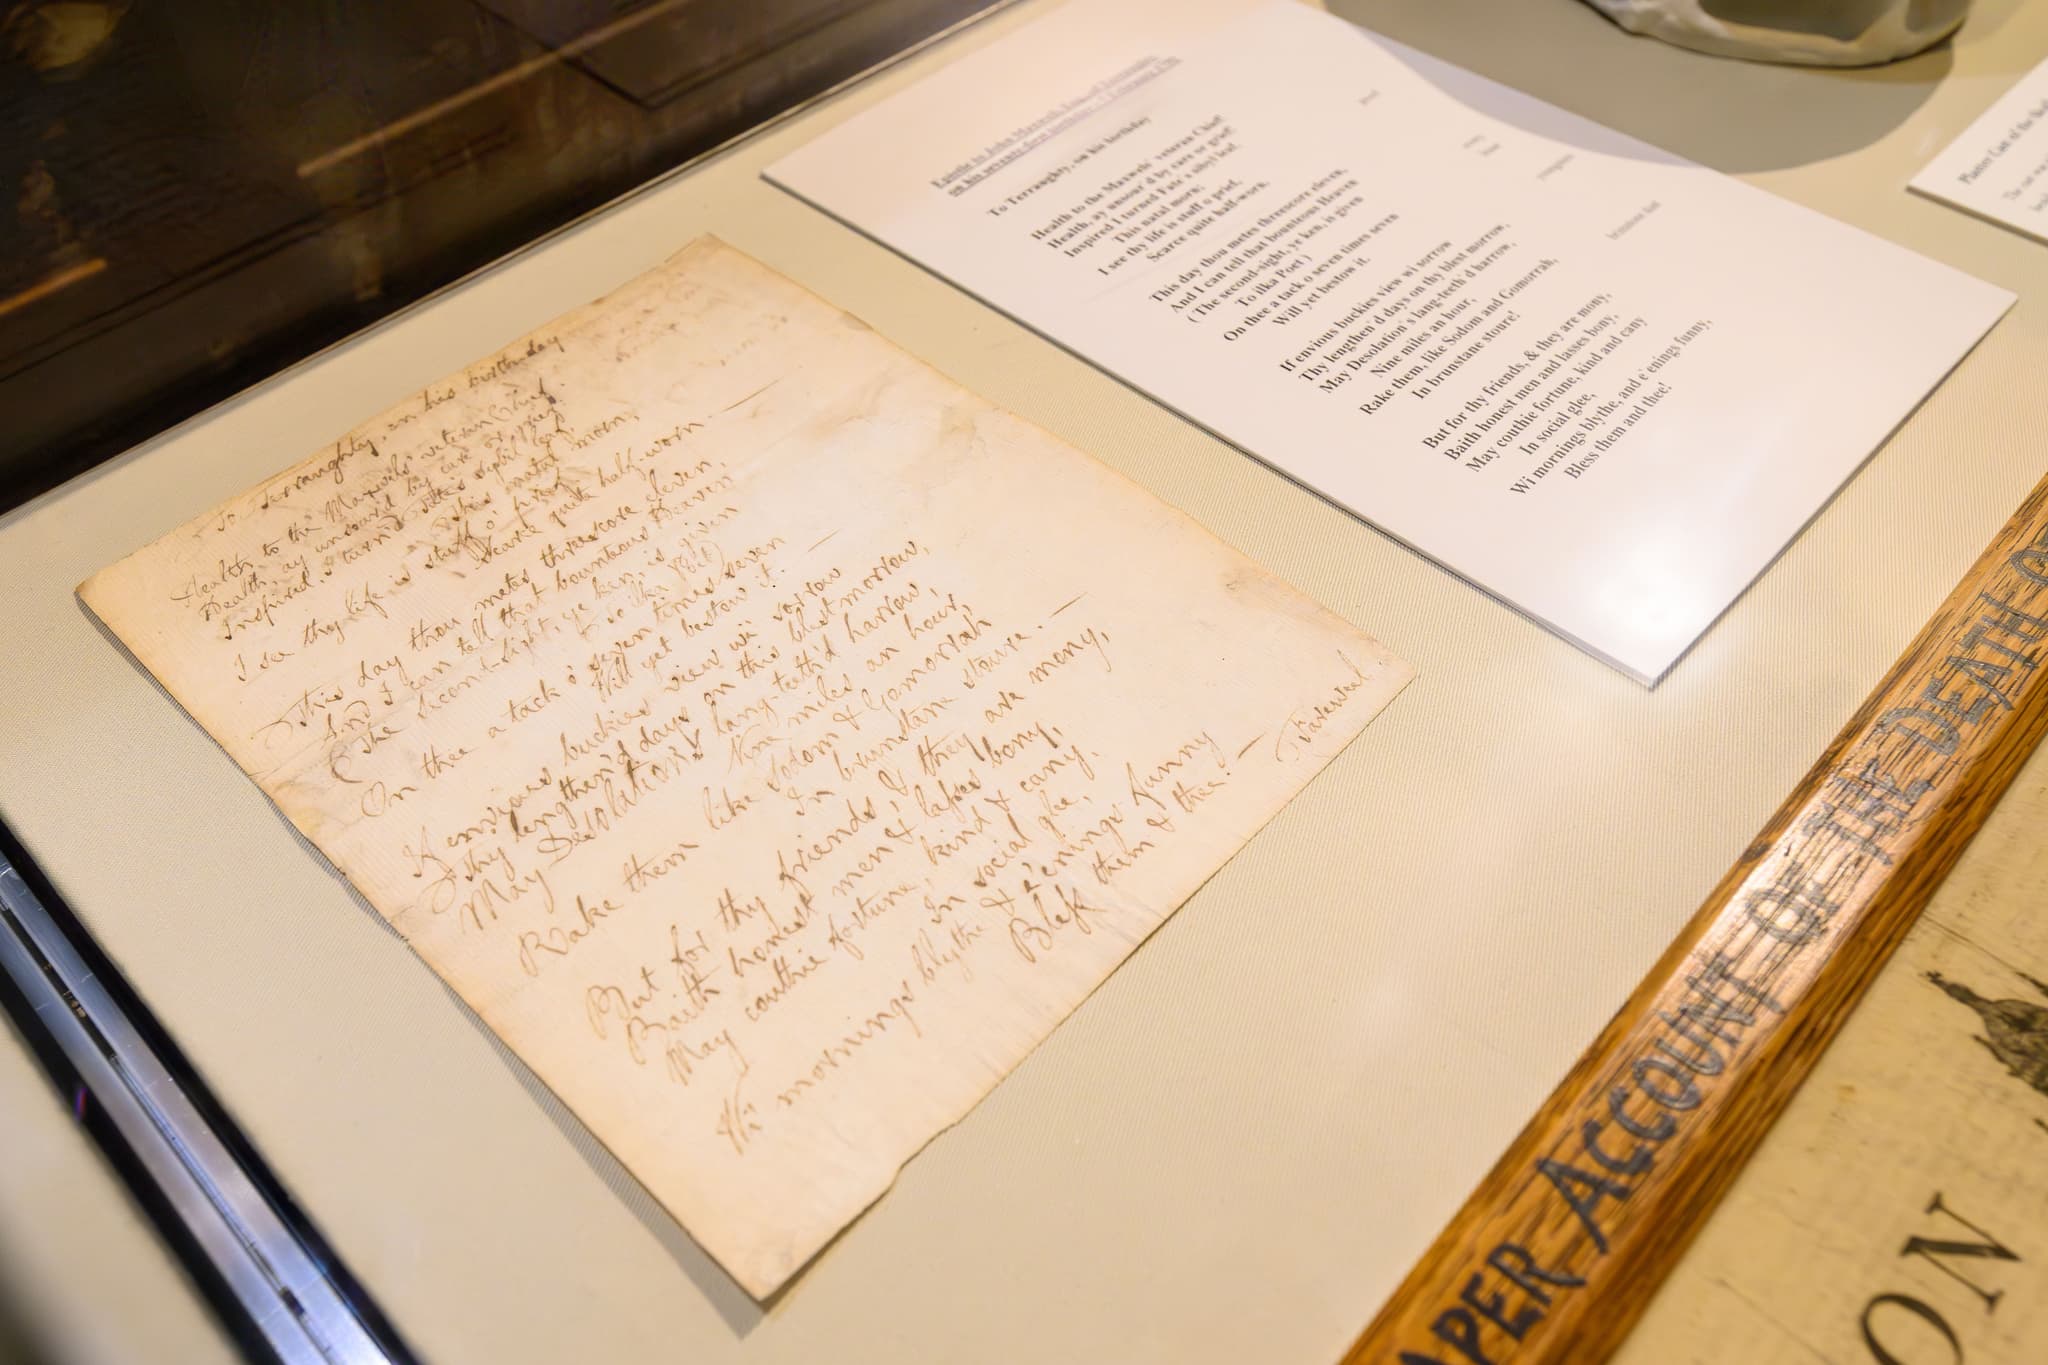 To Terraughty, on his birthday
Health to the Maxwels' veteran Chief!
Health, ay unsour'd by care or grief.
Inspired, I turn'd Fate's sybil leaf,
This natal morn;
I see thy life is stuff o' prief,
Scarce quite half-worn —
This day thou metes threescore eleven,
And I can tell that bounteous Heaven
(The second-sight, ye ken, is given
To ilka Poet)
On thee a tack o' seven times seven
Will yet bestow it. —
If envious buckies view wi' sorrow
Thy lengthen'd days on this blest morrow,
May Desolation's lang-teeth'd harrow,
Nine miles an hour,
Rake them like Sodom & Gomorrah
In brunstane stoure. —
But for thy friends, & they are mony,
Baith honest men & lasses bony,
May couthie fortune, kind & cany,
In social glee,
Wi' mornings blythe & e'enings funny
Bless them & thee! —
Farewel
Epistle to John Maxwell, Esq of Terraughty,
on his seventy-first birthday
To Terraughty, on his birthday
Health to the Maxwels' veteran Chief!
Health, ay unsour'd by care or grief!
Inspired, I turned Fate's sibyl leaf,
This natal morn;
I see thy life is stuff o prief,
Scarce quite half-worn.
proof
This day thou metes threescore eleven,
And I can tell that bounteous Heaven
(The second-sight, ye ken, is given
To ilka Poet)
On thee a tack o seven times seven
Will yet bestow it.
every
lease
If envious buckies view wi sorrow
Thy lengthen'd days on thy blest morrow,
May Desolation's lang-teeth'd harrow,
Nine miles an hour,
Rake them, like Sodom and Gomorrah,
In brunstane stoure!
youngsters
brimstone dust
But for thy friends, & they are mony,
Baith honest men and lasses bony,
May couthie fortune, kind and cany
In social glee,
Wi mornings blythe, and e'enings funny,
Bless them and thee!
Plaster Cast of the
The
APER ACCOUNT OF THE DEATH O
ON